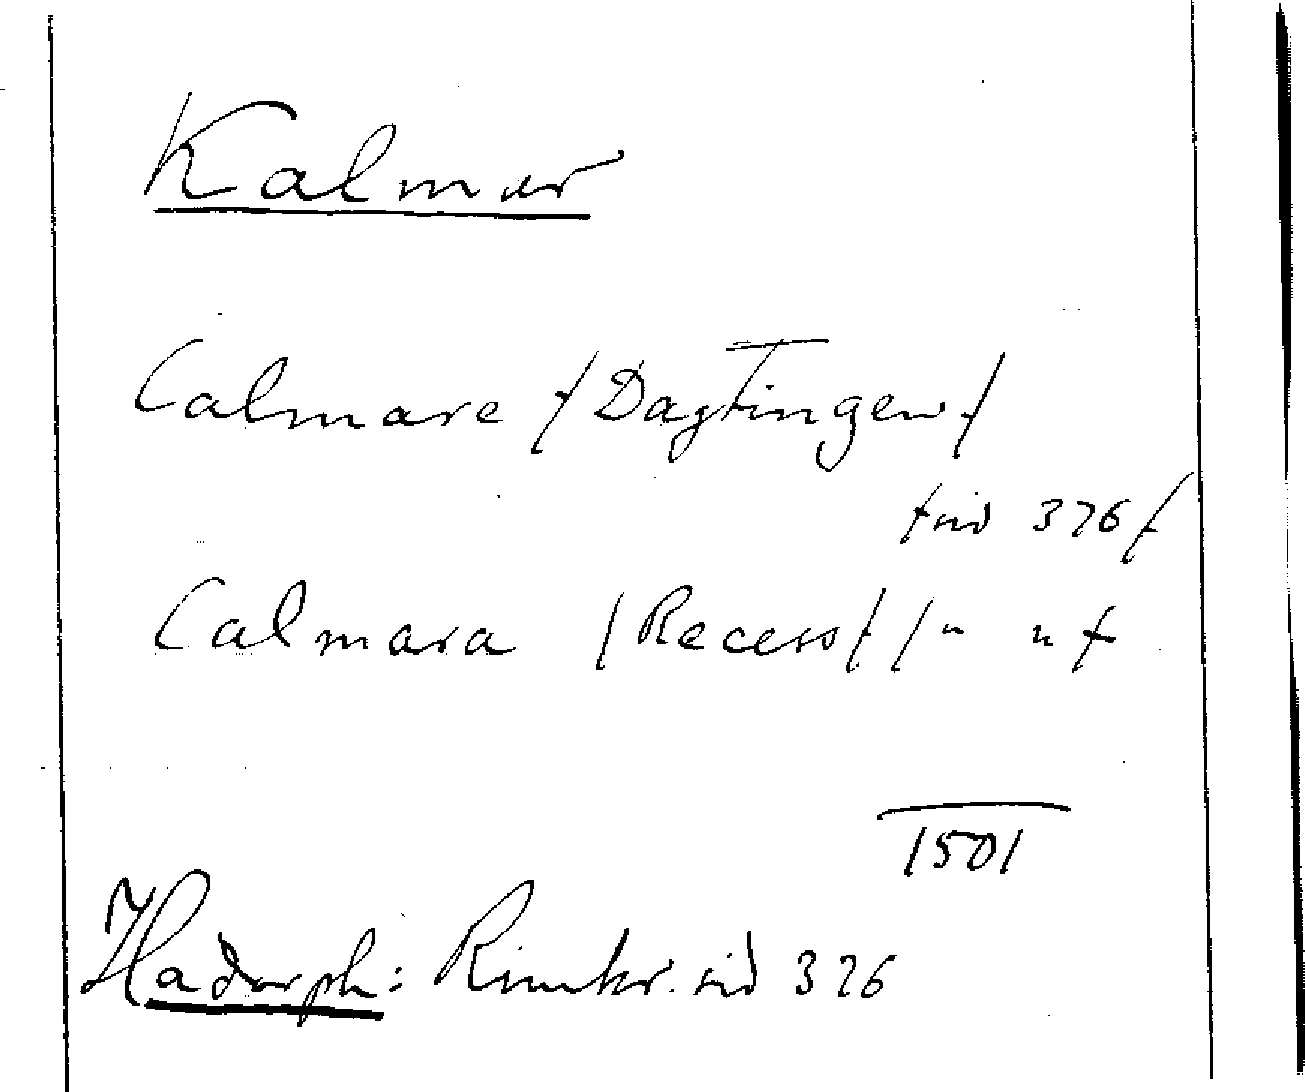 Kalmar
Calmare /Dagtingen/
/sid 376/
Calmara /Recess/ /" "/
1501
Hadorph: Rimkr. sid 376